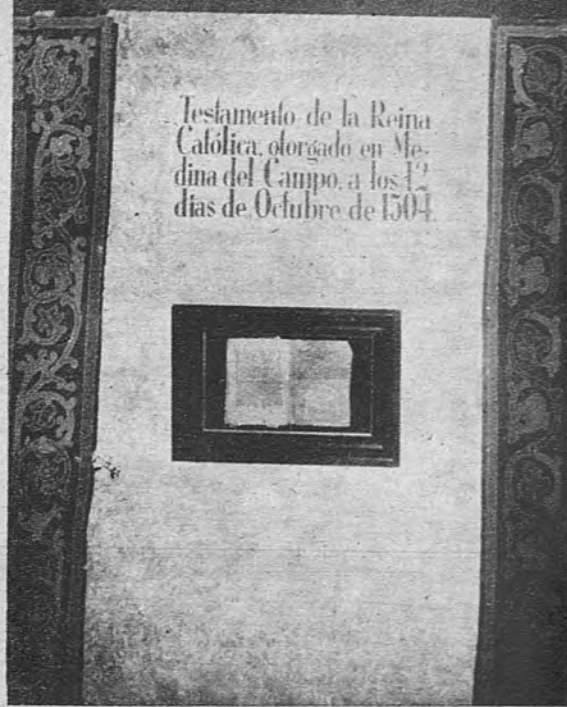 Testamento de la Reina
Católica, otorgado en Me-
dina del Campo, a los 12
dias de Octubre de 1504.